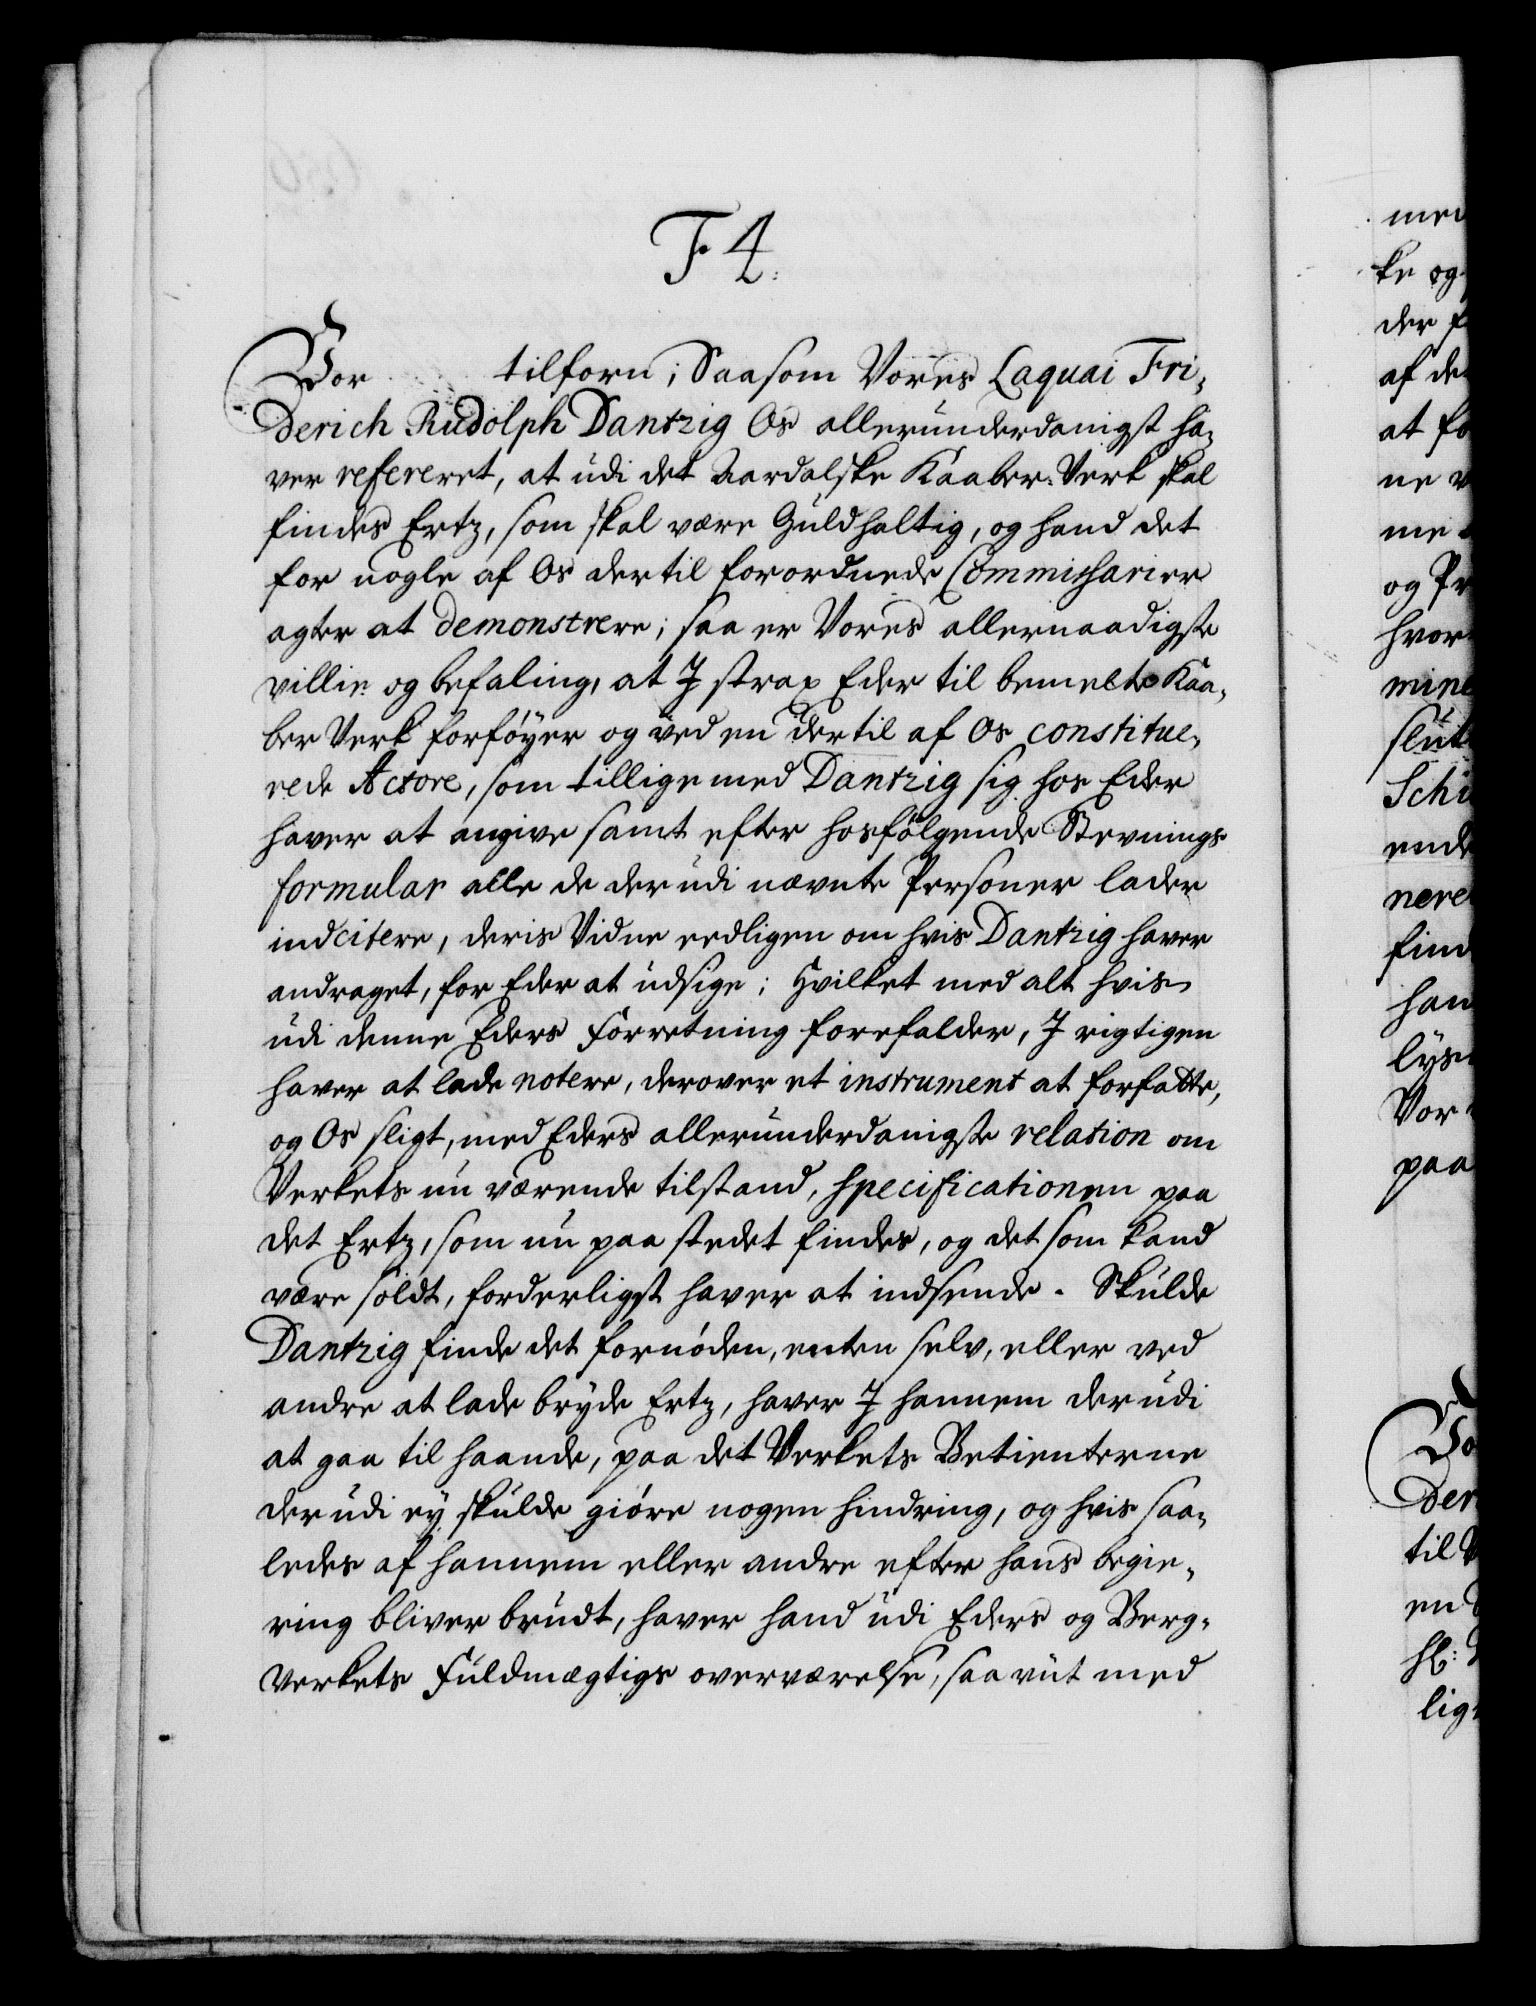 F 4.
Vor tilforn; Saasom Vores Laquai Fri-
derich Rudolph Dantzig Os allerunderdanigst ha-
ver refereret, at udi det Aardalske Kaaber-Verk skal
findes Ertz, som skal være Guldholtig, og hand det
for nogle af Os dertil forordnede Commissarier
agter at demonstrere; saa er Vores allernaadigste
villie og befaling, at I strax Eder til bemelte Kaa-
ber Verk forføyer og ved en dertil af Os constitue-
rede Actore, som tillige med Dantzig sig hos Eder
haver at angive samt efter hosfølgende Stevnings
formular alle de derudi nævnte Personer lader
indcitere, deris Vidne eedligen om hvis Dantzig haver
andraget, for Eder at udsige; Hvilket med alt hvis
udi denne Eders Forretning forefalder, I rigtigen
haver at lade notere, derover et instrument at forfatte,
og Os sligt, med Eders allerunderdanigste relation om
Verkets nu værende tilstand, specificationen paa
det Ertz, som nu paa stedet findes, og det som kand
være soldt, forderligst haver at indsende. Skulde
Dantzig finde det fornøden, enten selv, eller ved
andre at lade bryde Ertz, haver I hannem derudi
at gaa til haande, paa det Verkets Betienterne
derudi ey skulde giøre nogen hindring, og hvis saa-
ledes af hannem eller andre efter hans begie-
ring bliver brudt, haver hand udi Eders og Berg-
verkets Fuldmægtigs overværelse, saa vit med